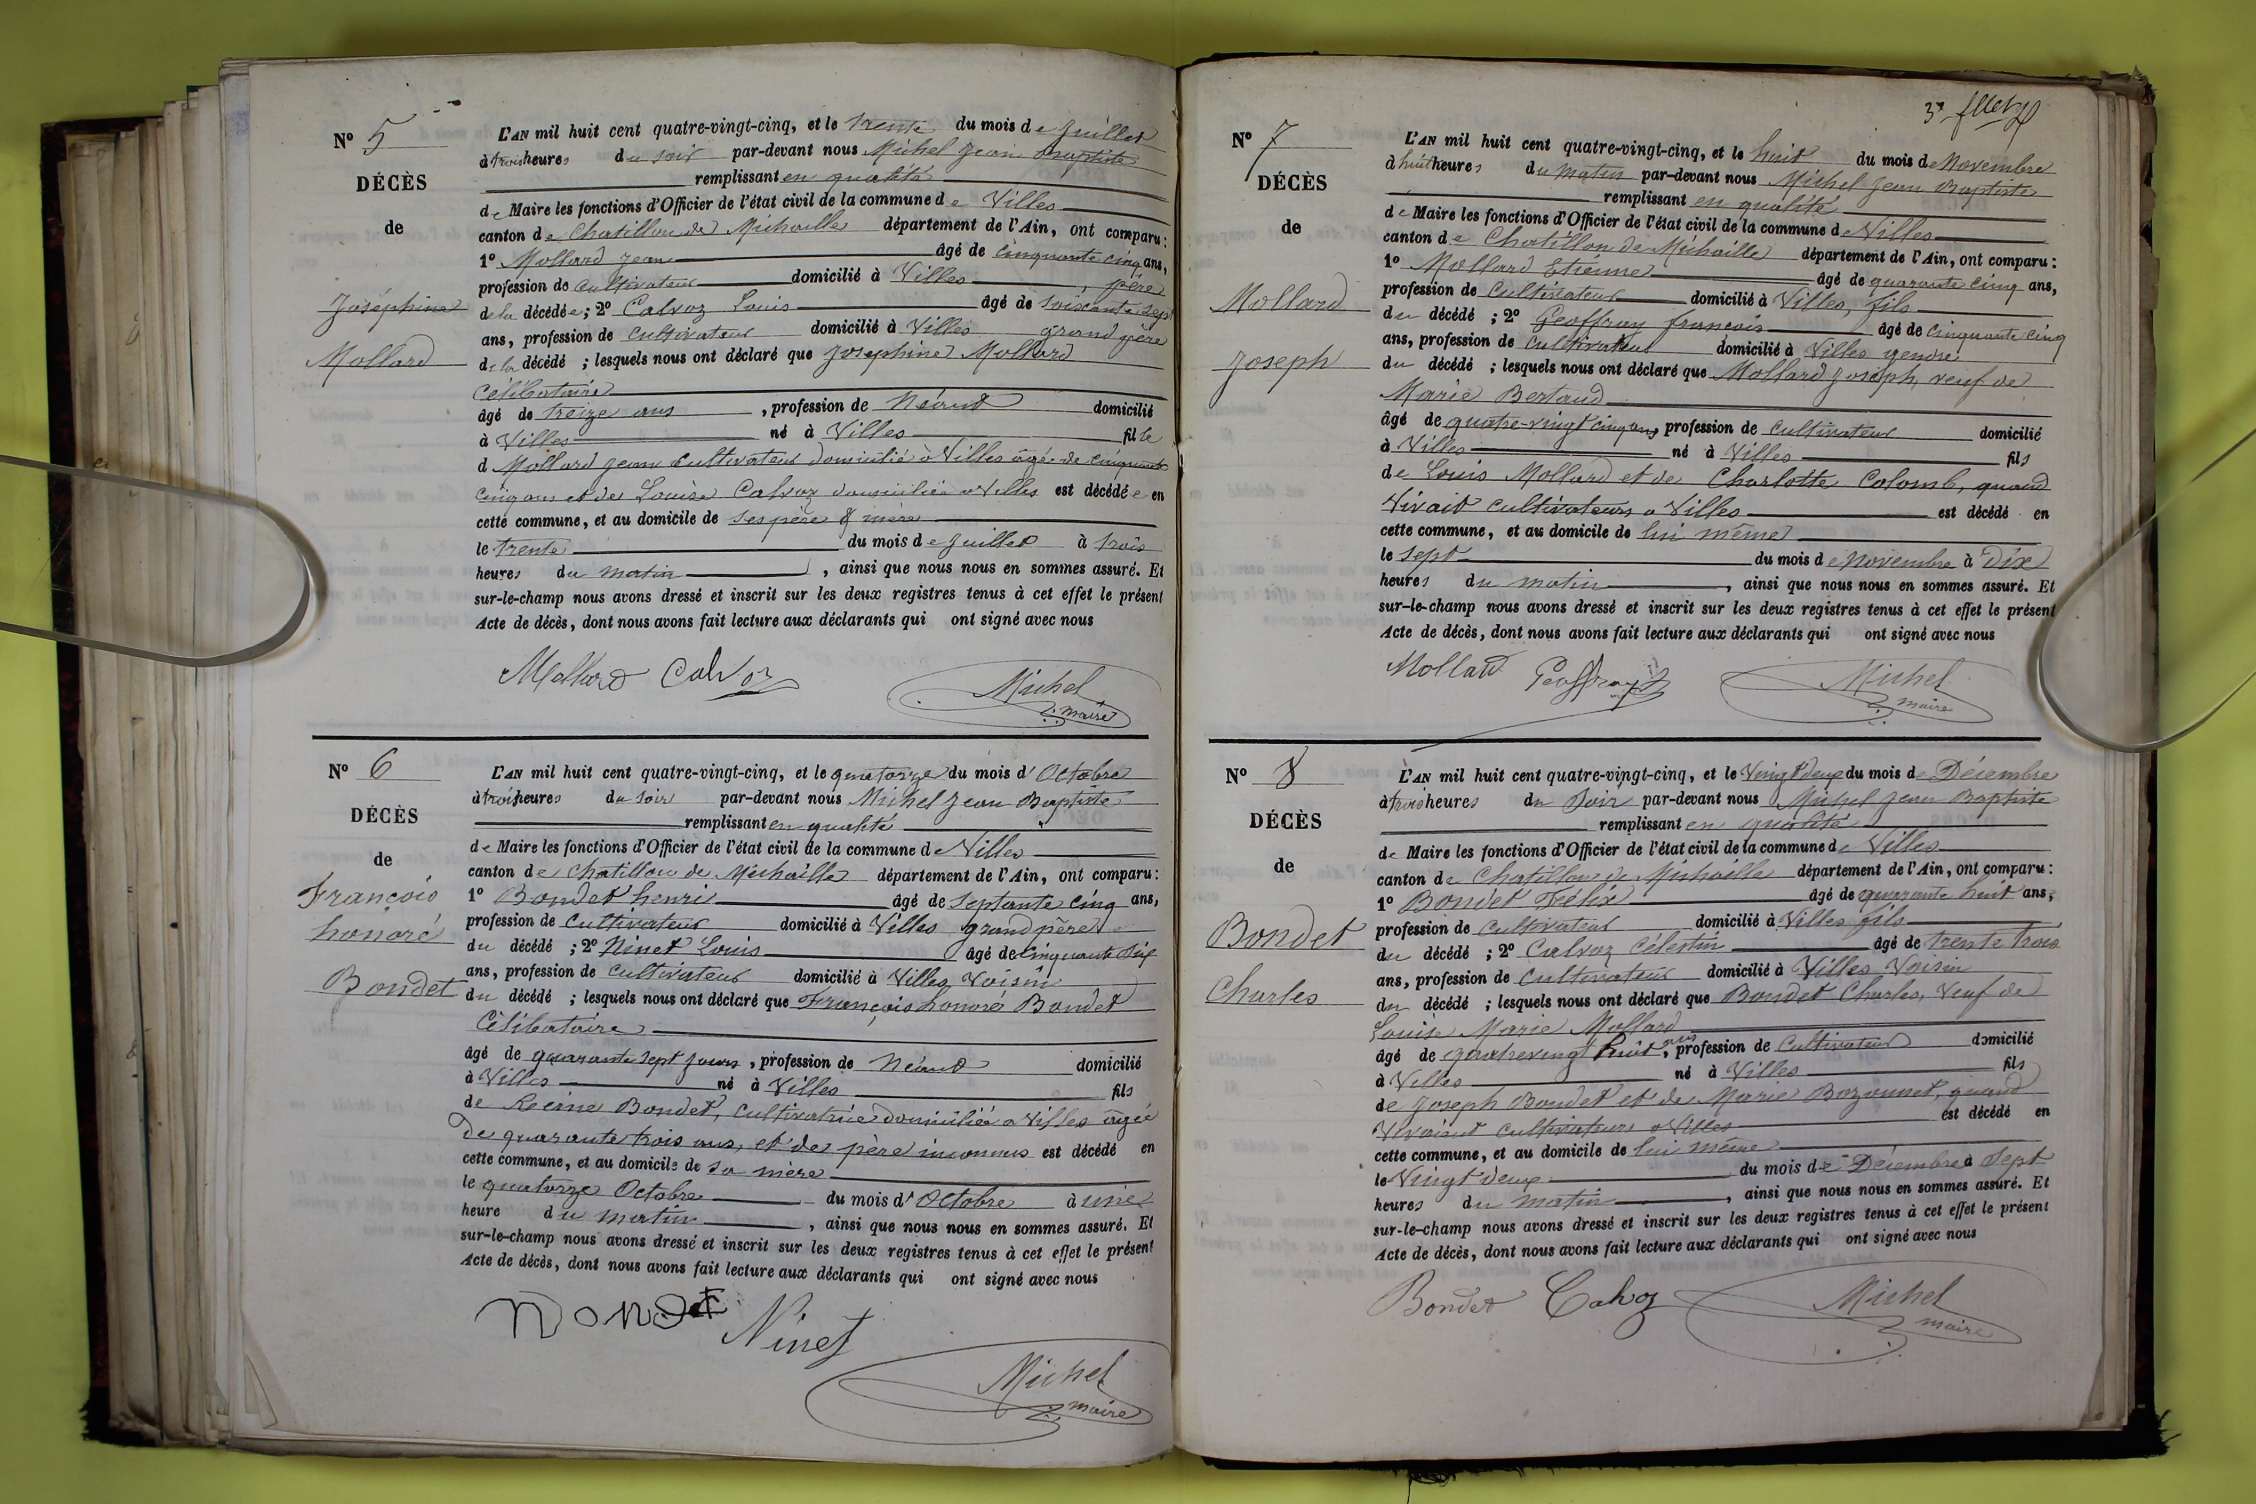 Nº 5
DÉCÈS
de
Joséphine
Mollard
L'AN mil huit cent quatre-vingt-cinq, et le trente du mois de Juillet
à trois heures du soir par-devant nous Michel Jean Baptiste
remplissant en qualité
de Maire les fonctions d'Officier de l'état civil de la commune de Villes
canton de Chatillon de Michaille département de l'Ain, ont comparu :
1º Mollard Jean âgé de cinquante cinq ans,
profession de cultivateur domicilié à Villes, père
de la décédée ; 2º Calvoz Louis âgé de soixante sept
ans, profession de cultivateur domicilié à Villes grand père
de la décédé ; lesquels nous ont déclaré que Josephine Mollard
Célibataire
âgé de treize ans , profession de Néant domicilié
à Villes né à Villes fille
d Mollard Jean cultivateur domicilié à Villes âgé de cinquante
cinq ans et de Louise Calvoz domiciliée a Villes est décédée en
cette commune, et au domicile de ses père & mère
le trente du mois de Juillet à trois
heures du matin , ainsi que nous nous en sommes assuré. Et
sur-le-champ nous avons dressé et inscrit sur les deux registres tenus à cet effet le présent
Acte de décès, dont nous avons fait lecture aux déclarants qui ont signé avec nous
Mollard Calvoz Michel
maire
Nº 6
DÉCÈS
de
François
honoré
Bondet
L'AN mil huit cent quatre-vingt-cinq, et le quatorze du mois d'Octobre
à trois heures du soir par-devant nous Michel Jean Baptiste
remplissant en qualité
de Maire les fonctions d'Officier de l'état civil de la commune de Villes
canton de Chatillon de Michaille département de l'Ain, ont comparu :
1º Bondet henri âgé de septante cinq ans,
profession de cultivateur domicilié à Villes grand père
du décédé ; 2º Ninet Louis âgé de cinquante six
ans, profession de cultivateur domicilié à Villes Voisin
du décédé ; lesquels nous ont déclaré que François honoré Bondet
Célibataire
âgé de quarante sept jours , profession de Néant domicilié
à Villes né à Villes fils
de Reine Bondet, cultivatrice domiciliée a Villes âgée
de quarante trois ans, et de père inconnus est décédé en
cette commune, et au domicile de sa mère
le quatorze Octobre du mois d'Octobre à une
heure du matin , ainsi que nous nous en sommes assuré. Et
sur-le-champ nous avons dressé et inscrit sur les deux registres tenus à cet effet le présent
Acte de décès, dont nous avons fait lecture aux déclarants qui ont signé avec nous
Ninet
Michel
maire
Nº 7
DÉCÈS
de
Mollard
Joseph
L'AN mil huit cent quatre-vingt-cinq, et le huit du mois de Novembre
à huit heures du matin par-devant nous Michel Jean Baptiste
remplissant en qualité
de Maire les fonctions d'Officier de l'état civil de la commune de Villes
canton de Chatillon de Michaille département de l'Ain, ont comparu :
1º Mollard Etienne âgé de quarante cinq ans,
profession de cultivateur domicilié à Villes, fils
du décédé ; 2º Geoffray françois âgé de cinquante cinq
ans, profession de cultivateur domicilié à Villes gendre
du décédé ; lesquels nous ont déclaré que Mollard Joseph, veuf de
Marie Bertaud
âgé de quatre-vingt cinq ans, profession de cultivateur domicilié
à Villes né à Villes fils
de Louis Mollard et de Charlotte Colomb, quand
vivait cultivateurs a Villes est décédé en
cette commune, et au domicile de lui même
le sept du mois de Novembre à Dix
heures du matin , ainsi que nous nous en sommes assuré. Et
sur-le-champ nous avons dressé et inscrit sur les deux registres tenus à cet effet le présent
Acte de décès, dont nous avons fait lecture aux déclarants qui ont signé avec nous
Mollard Geoffray Michel
maire
Nº 8
DÉCÈS
de
Bondet
Charles
L'AN mil huit cent quatre-vingt-cinq, et le Vingt deux du mois de Décembre
à trois heures du Soir par-devant nous Michel Jean Baptiste
remplissant en qualité
de Maire les fonctions d'Officier de l'état civil de la commune de Villes
canton de Chatillon de Michaille département de l'Ain, ont comparu :
1º Bondet Félix âgé de quarante huit ans,
profession de cultivateur domicilié à Villes fils
du décédé ; 2º Calvoz Célestin âgé de trente trois
ans, profession de cultivateur domicilié à Villes Voisin
du décédé ; lesquels nous ont déclaré que Bondet Charles, Veuf de
Louise Marie Mollard
âgé de quatrevingt huit ans, profession de cultivateur domicilié
à Villes né à Villes fils
de Joseph Bondet et de Marie Bozonnet, quand
Vivaient cultivateurs a Villes est décédé en
cette commune, et au domicile de lui même
le Vingt deux du mois de Décembre à Sept
heures du matin , ainsi que nous nous en sommes assuré. Et
sur-le-champ nous avons dressé et inscrit sur les deux registres tenus à cet effet le présent
Acte de décès, dont nous avons fait lecture aux déclarants qui ont signé avec nous
Bondet Calvoz Michel
maire